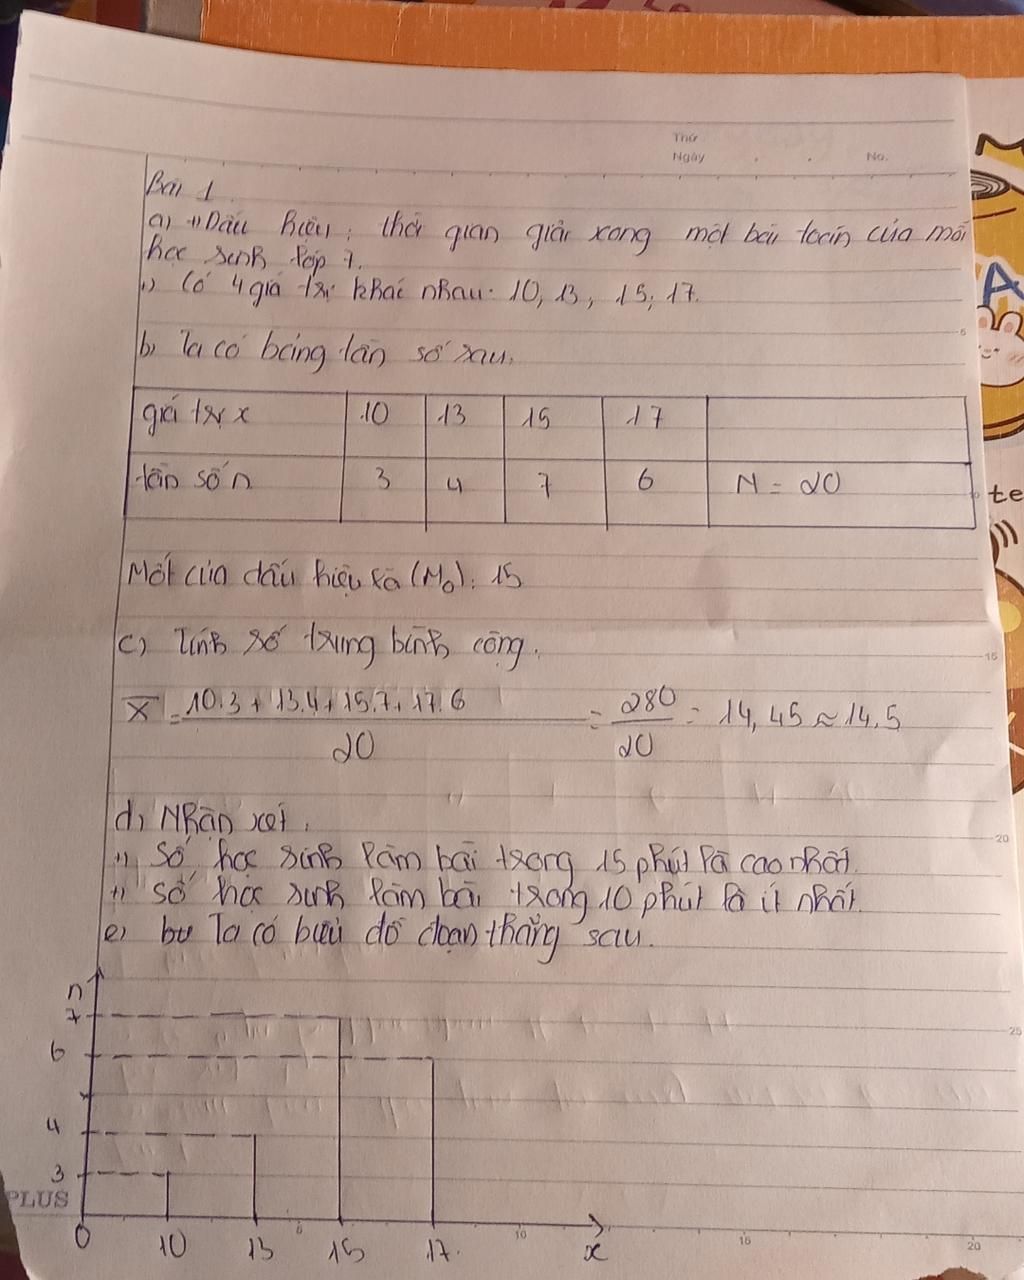 Thứ
Ngày . . No.
Bài 1
a) +) Dấu hiệu : thời gian giải xong một bài toán của mỗi
học sinh lớp 7.
+) Có 4 giá trị khác nhau: 10, 13, 15, 17.
b) Ta có bảng tần số sau.
giá trị x 10 13 15 17
tần số n 3 4 7 6 N = 20
Mốt của dấu hiệu là (M₀) : 15
c) Tính số trung bình cộng.
X̄ = (10.3 + 13.4 + 15.7 + 17.6)/20 = 280/20 = 14,45 ≈ 14,5
d) Nhận xét.
+) Số học sinh làm bài trong 15 phút là cao nhất.
+) Số học sinh làm bài trong 10 phút là ít nhất.
e) Ta có biểu đồ đoạn thẳng sau.
n
7
6
4
3
0 10 13 15 17. x
PLUS
A
te
5
10
15
20
25
5 10 15 20